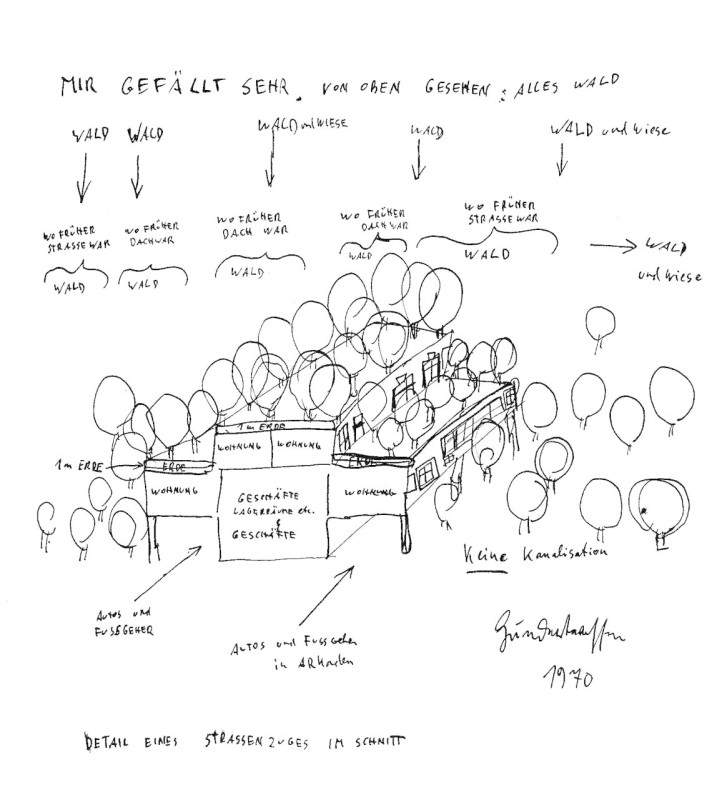 MIR GEFÄLLT SEHR. VON OBEN GESEHEN: ALLES WALD
WALD
WALD
WALD und WIESE
WALD
WALD und wiese
WO FRÜHER
STRASSE WAR
WALD
WO FRÜHER
DACH WAR
WALD
WO FRÜHER
DACH WAR
WALD
WO FRÜHER
DACH WAR
WALD
WO FRÜHER
STRASSE WAR
WALD
WALD
und wiese
1 m ERDE
1 m ERDE
ERDE
ERDE
WOHNUNG
WOHNUNG
WOHNUNG
WOHNUNG
GESCHÄFTE
LAGERRÄUME etc.
&
GESCHÄFTE
Keine Kanalisation
AUTOS und
FUSSGEHER
AUTOS und Fussgeher
in ARKaden
Hundertwasser
1970
DETAIL EINES STRASSENZUGES IM SCHNITT